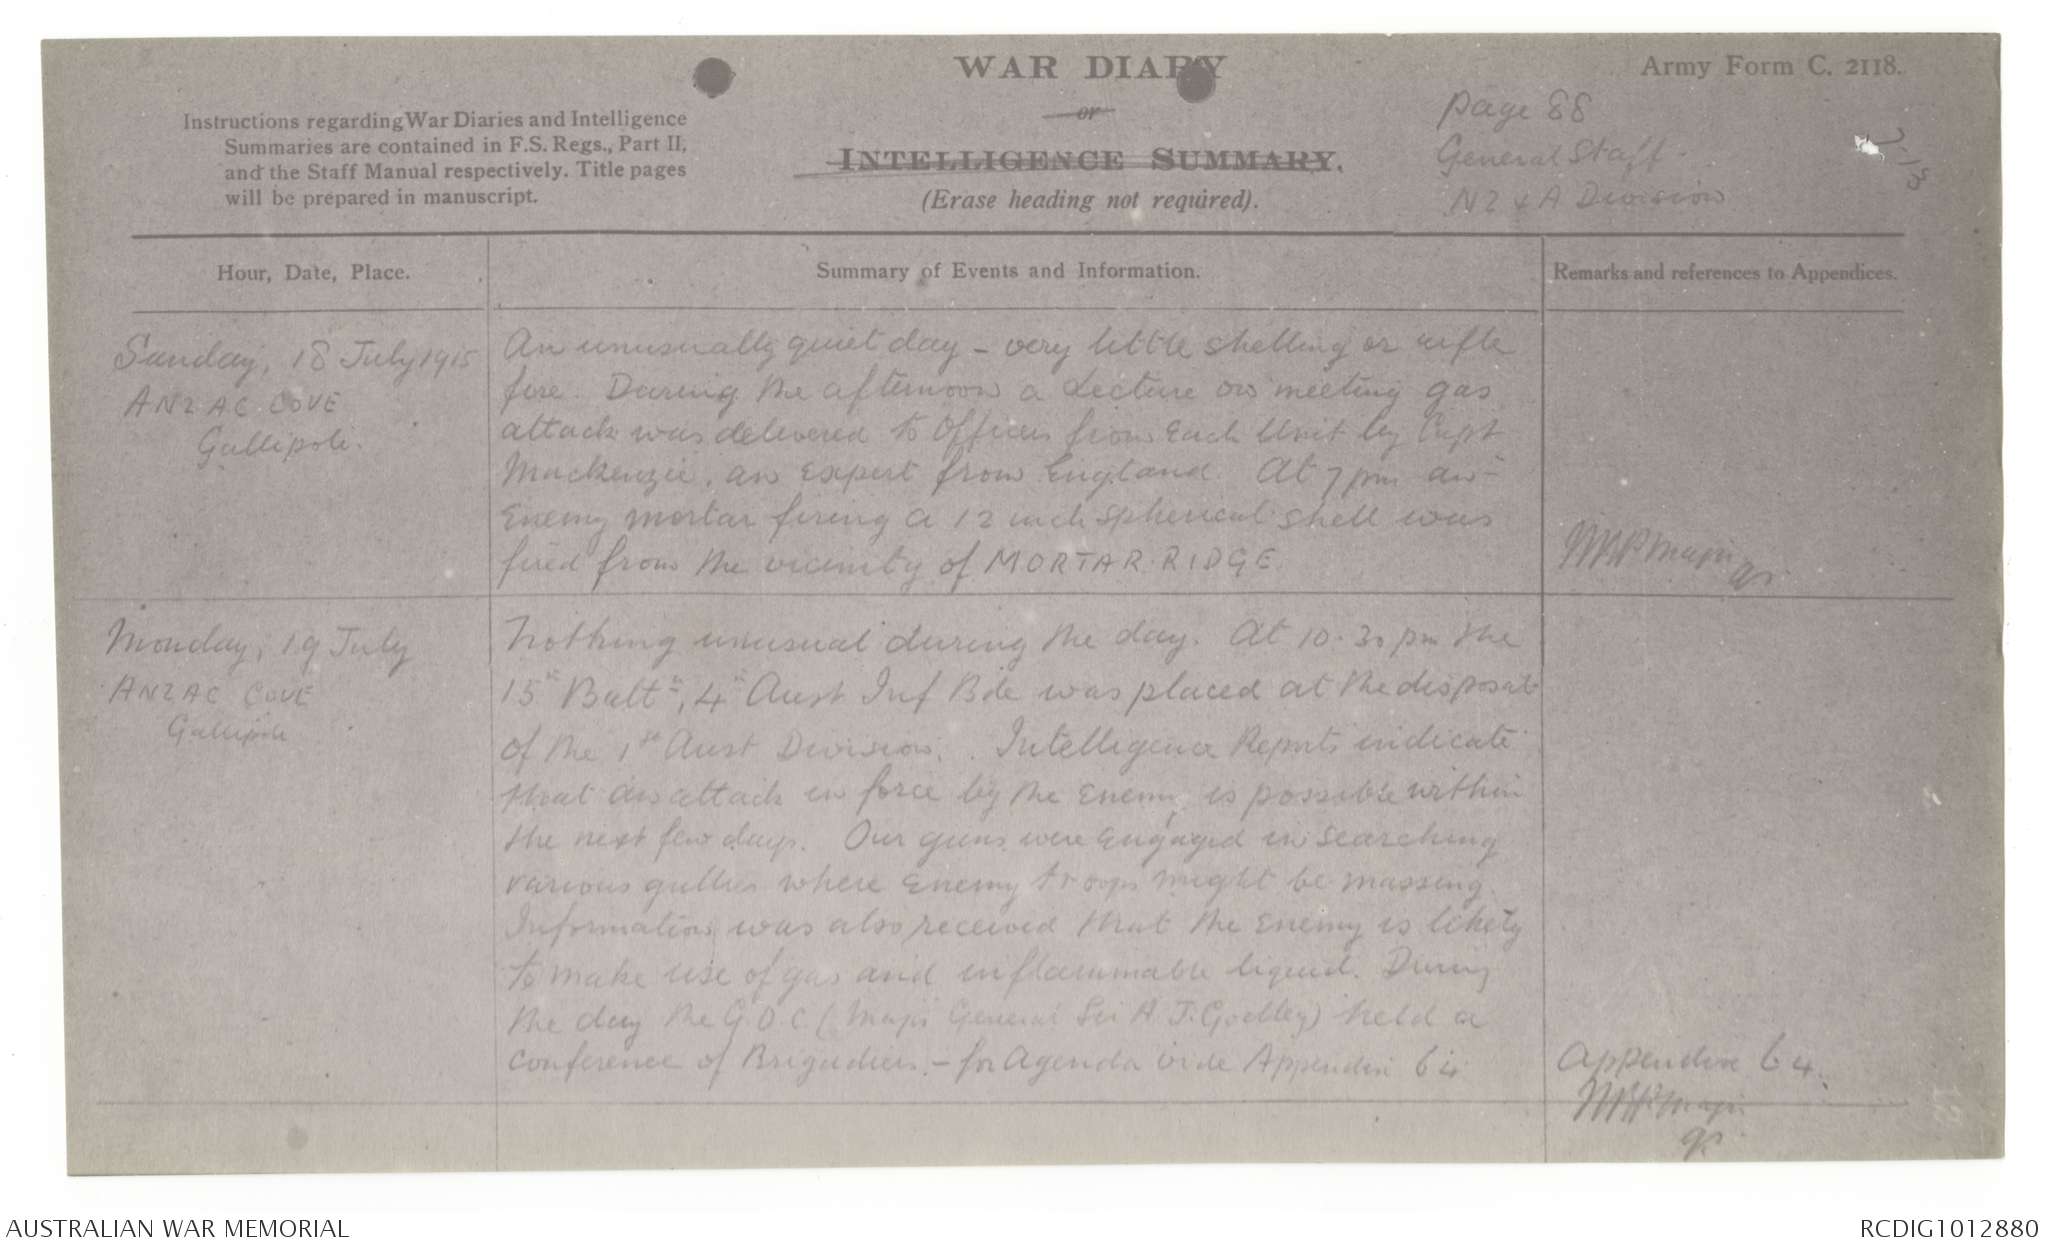 WAR DIARY
or
INTELLIGENCE SUMMARY.
(Erase heading not required).
Army Form C. 2118.
Instructions regarding War Diaries and Intelligence
Summaries are contained in F.S. Regs., Part II,
and the Staff Manual respectively. Title pages
will be prepared in manuscript.
Page 88
General Staff
NZ & A Division
Hour, Date, Place.
Summary of Events and Information.
Remarks and references to Appendices.
Sunday, 18 July 1915
ANZAC COVE
Gallipoli.
An unusually quiet day - very little shelling or rifle
fire. During the afternoon a Lecture on meeting gas
attack was delivered to Officers from each Unit by Capt
Mackenzie, an expert from England. At 7 pm an
Enemy mortar firing a 12 inch spherical shell was
fired from the vicinity of MORTAR RIDGE
Major
GS.
Monday, 19 July
ANZAC COVE
Gallipoli
Nothing unusual during the day. At 10.30 pm the
15th Battn, 4th Aust Inf Bde was placed at the disposal
of the 1st Aust Division. Intelligence Reports indicate
that an attack in force by the Enemy is possible within
the next few days. Our guns were engaged in searching
various gullies where Enemy troops might be massing.
Information was also received that the Enemy is likely
to make use of gas and inflammable liquid. During
the day the G.O.C (Major General Sir A J. Godley) held a
Conference of Brigadiers - for Agenda vide Appendix 64
Appendix 64.
Major
GS.
AUSTRALIAN WAR MEMORIAL
RCDIG1012880